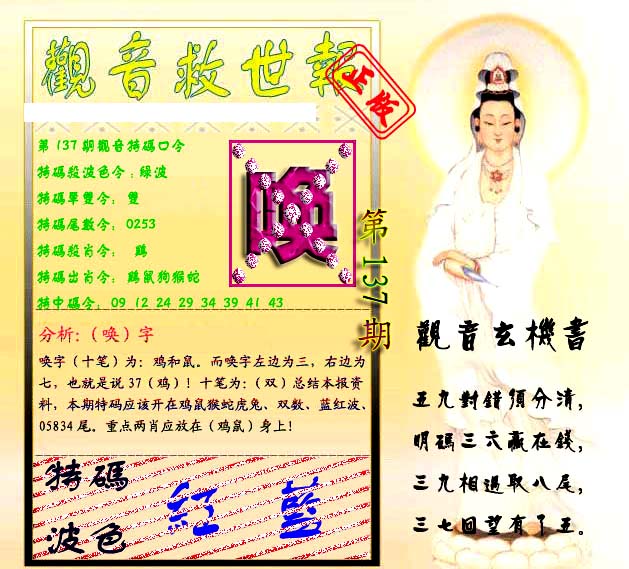 觀音救世報
正版
第137期觀音特碼口令
特碼殺波色令：綠波
特碼單雙令： 雙
特碼尾數令： 0253
特碼殺肖令： 鷄
特碼出肖令： 鷄鼠狗猴蛇
特中碼令： 09 12 24 29 34 39 41 43
喚
第137期
分析:（唤）字
唤字（十笔）为：鸡和鼠。而唤字左边为三，右边为
七，也就是说 37（鸡）！十笔为:（双）总结本报资
料，本期特码应该开在鸡鼠猴蛇虎兔、双数、蓝红波、
05834 尾。重点两肖应放在（鸡鼠）身上!
特碼
波色
紅 藍
觀音玄機書
五九對錯須分清，
明碼三六贏在錢，
三九相過取八尾，
三七回望有了五。